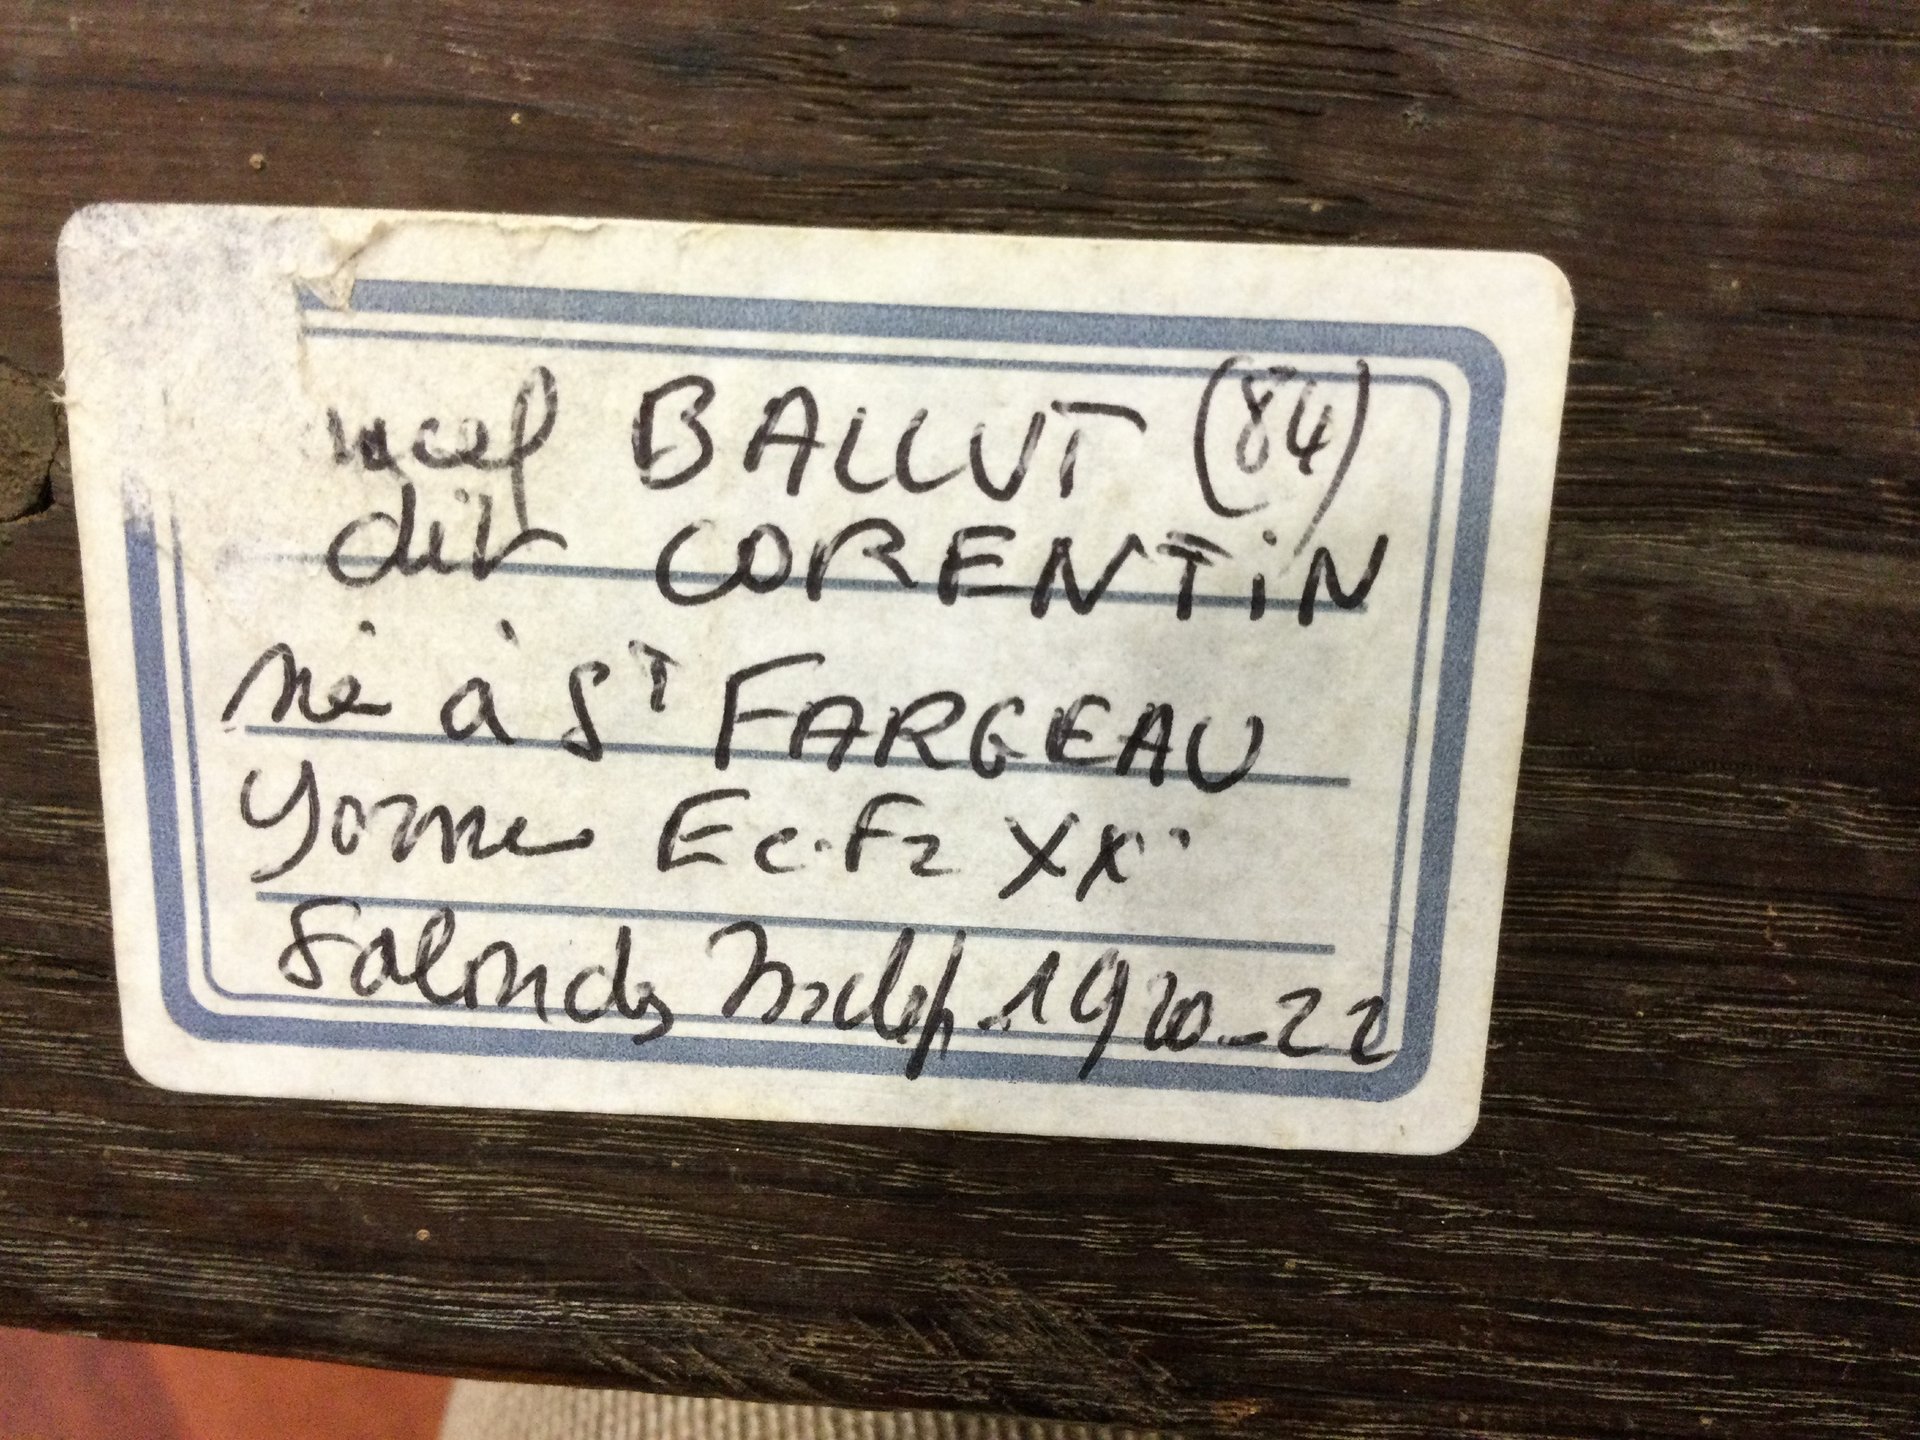 BALLUT (84)
dit CORENTIN
né à St FARGEAU
Yonne Ec. Fr XX
Salon des Indep. 1920-22